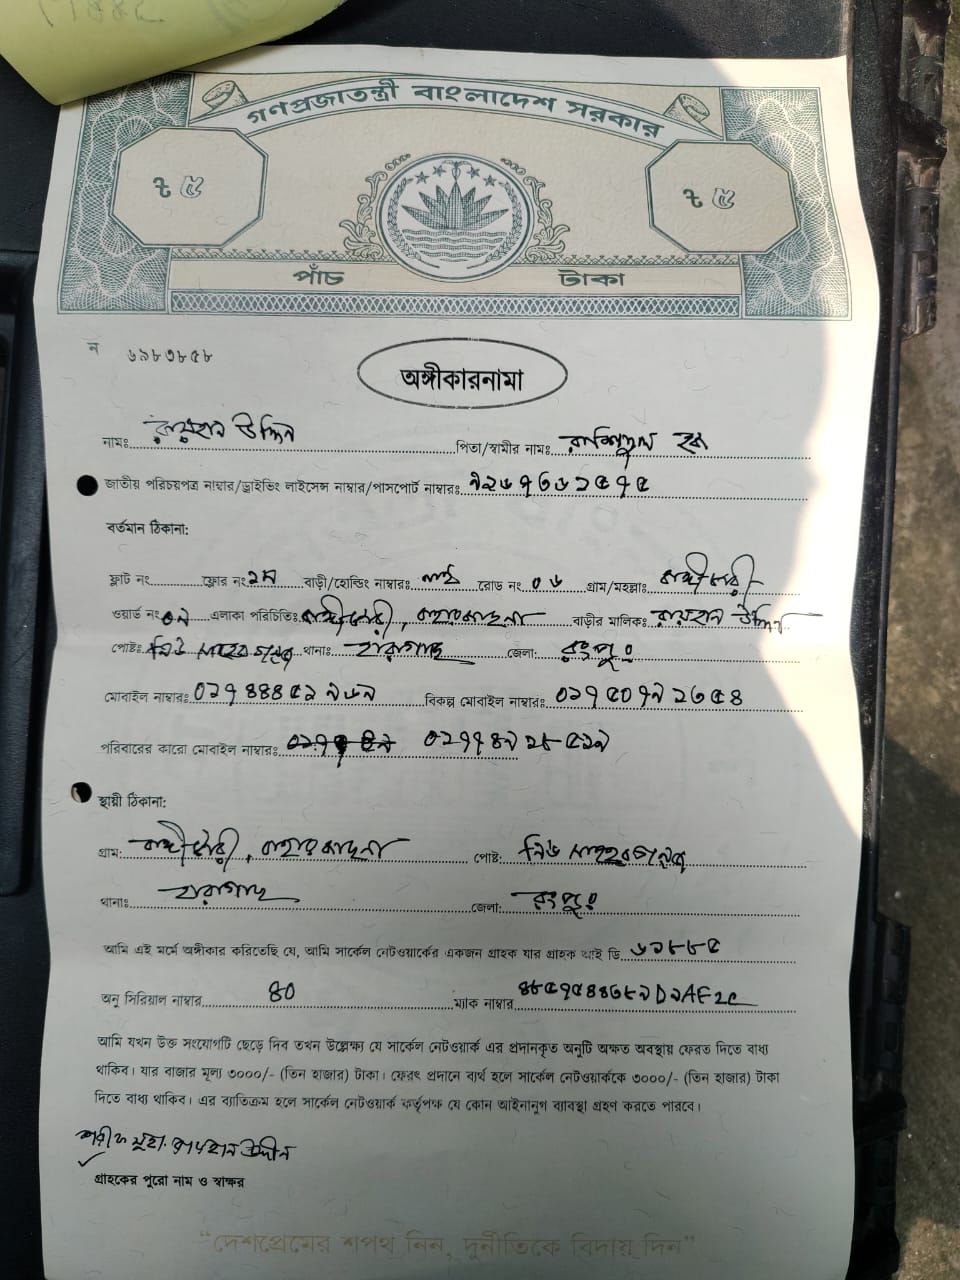 গণপ্রজাতন্ত্রী বাংলাদেশ সরকার
৳ ৫ ৳ ৫
পাঁচ টাকা
ন ৬৯৮৩৮৫৮
অঙ্গীকারনামা
নামঃ রায়হান উদ্দিন পিতা/স্বামীর নামঃ রাশিদুল হক
জাতীয় পরিচয়পত্র নাম্বার/ড্রাইভিং লাইসেন্স নাম্বার/পাসপোর্ট নাম্বারঃ
বর্তমান ঠিকানা:
ফ্লাট নং ফ্লোর নং ২য় বাড়ী/হোল্ডিং নাম্বারঃ রোড নং ০৬ গ্রাম/মহল্লাঃ
ওয়ার্ড নং এলাকা পরিচিতিঃ বাড়ীর মালিকঃ রায়হান উদ্দিন
পোষ্টঃ নিউ সাহেবগঞ্জ থানাঃ হারাগাছ জেলা: রংপুর
মোবাইল নাম্বারঃ বিকল্প মোবাইল নাম্বারঃ
পরিবারের কারো মোবাইল নাম্বারঃ
স্থায়ী ঠিকানা:
গ্রাম: পোষ্ট: নিউ সাহেবগঞ্জ
থানাঃ হারাগাছ জেলা: রংপুর
আমি এই মর্মে অঙ্গীকার করিতেছি যে, আমি সার্কেল নেটওয়ার্কের একজন গ্রাহক যার গ্রাহক আই ডি ৬১৮৮৫
অনু সিরিয়াল নাম্বার ৪০ ম্যাক নাম্বার
আমি যখন উক্ত সংযোগটি ছেড়ে দিব তখন উল্লেক্ষ্য যে সার্কেল নেটওয়ার্ক এর প্রদানকৃত অনুটি অক্ষত অবস্থায় ফেরত দিতে বাধ্য
থাকিব। যার বাজার মূল্য ৩০০০/- (তিন হাজার) টাকা। ফেরৎ প্রদানে ব্যর্থ হলে সার্কেল নেটওয়ার্ককে ৩০০০/- (তিন হাজার) টাকা
দিতে বাধ্য থাকিব। এর ব্যতিক্রম হলে সার্কেল নেটওয়ার্ক কর্তৃপক্ষ যে কোন আইনানুগ ব্যবস্থা গ্রহণ করতে পারবে।
শরীফ মুহা. রায়হান উদ্দীন
গ্রাহকের পুরো নাম ও স্বাক্ষর
"দেশপ্রেমের শপথ নিন, দুর্নীতিকে বিদায় দিন"